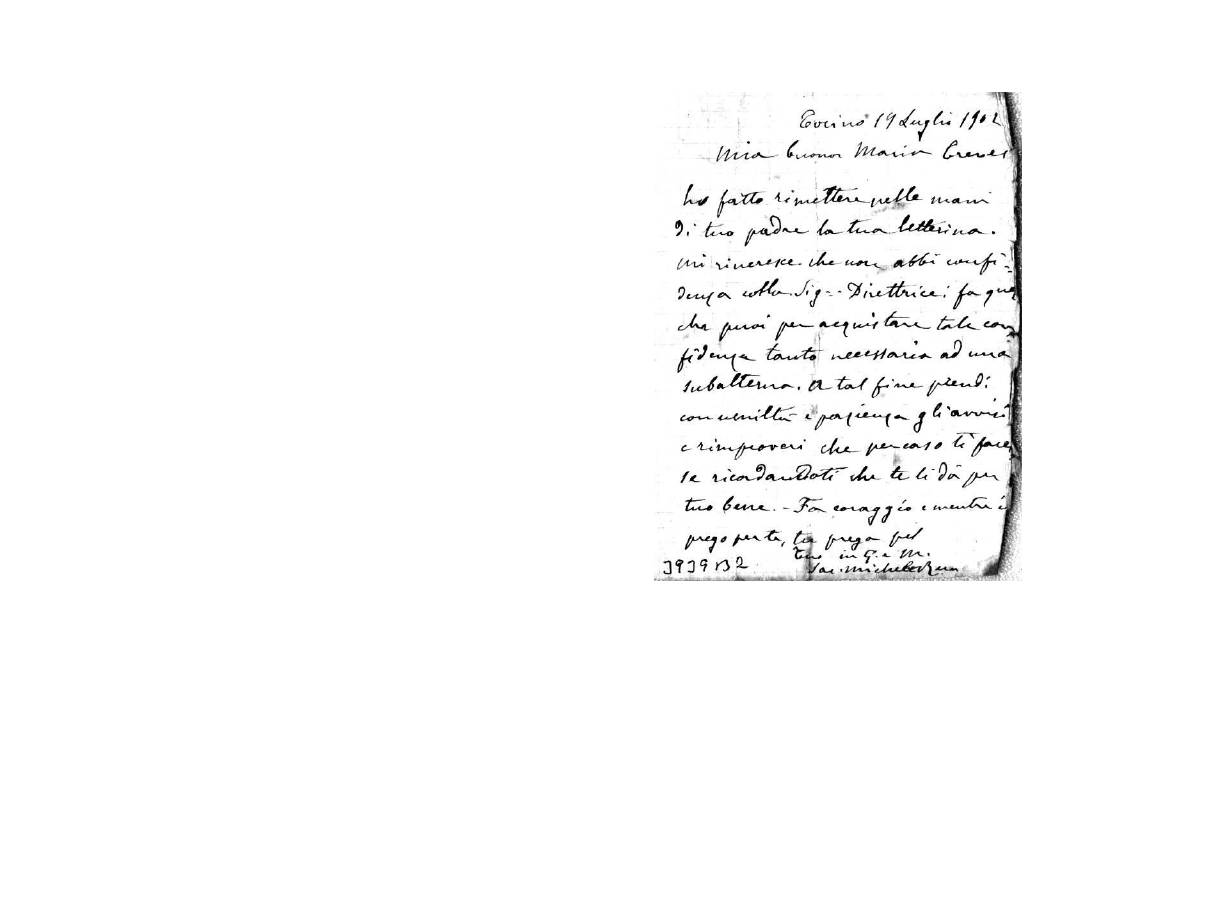 Torino 19 Luglio 1902
Mia buona Maria
ho fatto rimettere nelle mani
di tuo padre la tua letterina.
Mi rincresce che non abbi confi-
denza colla Sig.- Direttrice: fa
che puoi per acquistare tale con
fidenza tanto necessaria ad una
subalterna. A tal fine prendi
con umiltà e pazienza gli avvisi
e rimproveri che per caso ti faces
se ricordandoti che te li dà per
tuo bene. - Fa coraggio e mentre
prego per te, tu prega pel
tuo in G. e M.
Sac. Michele Rua
3939 B2